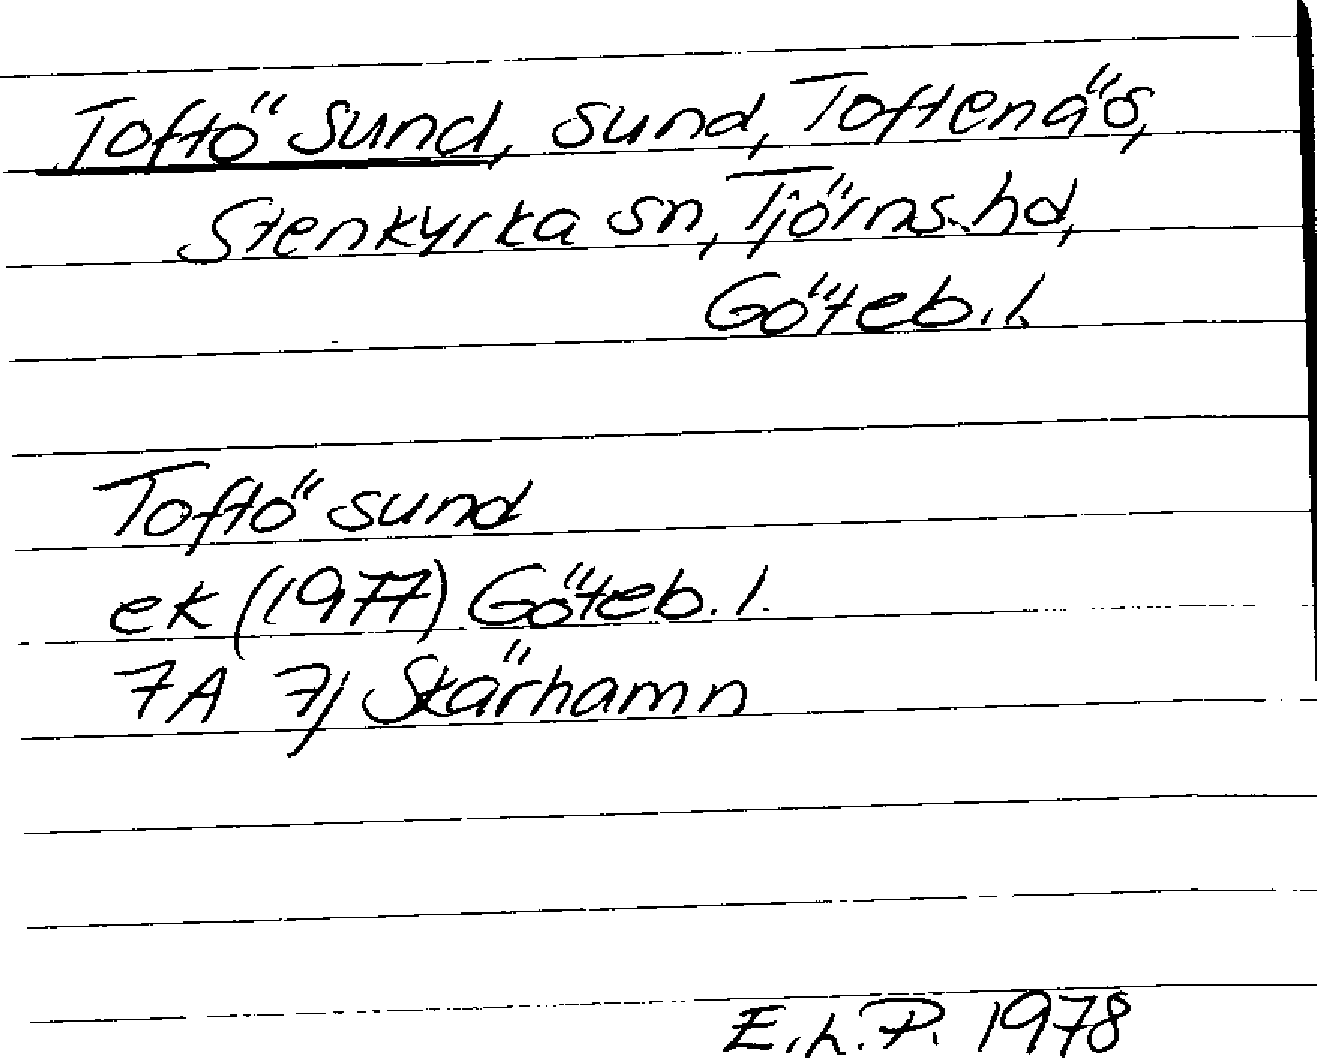 Toftö sund, sund, Toftenäs,
Stenkyrka sn, Tjörns hd,
Göteb. l.
Toftö sund
ek (1977) Göteb. l.
7A 7j Skärhamn
E.L.P. 1978